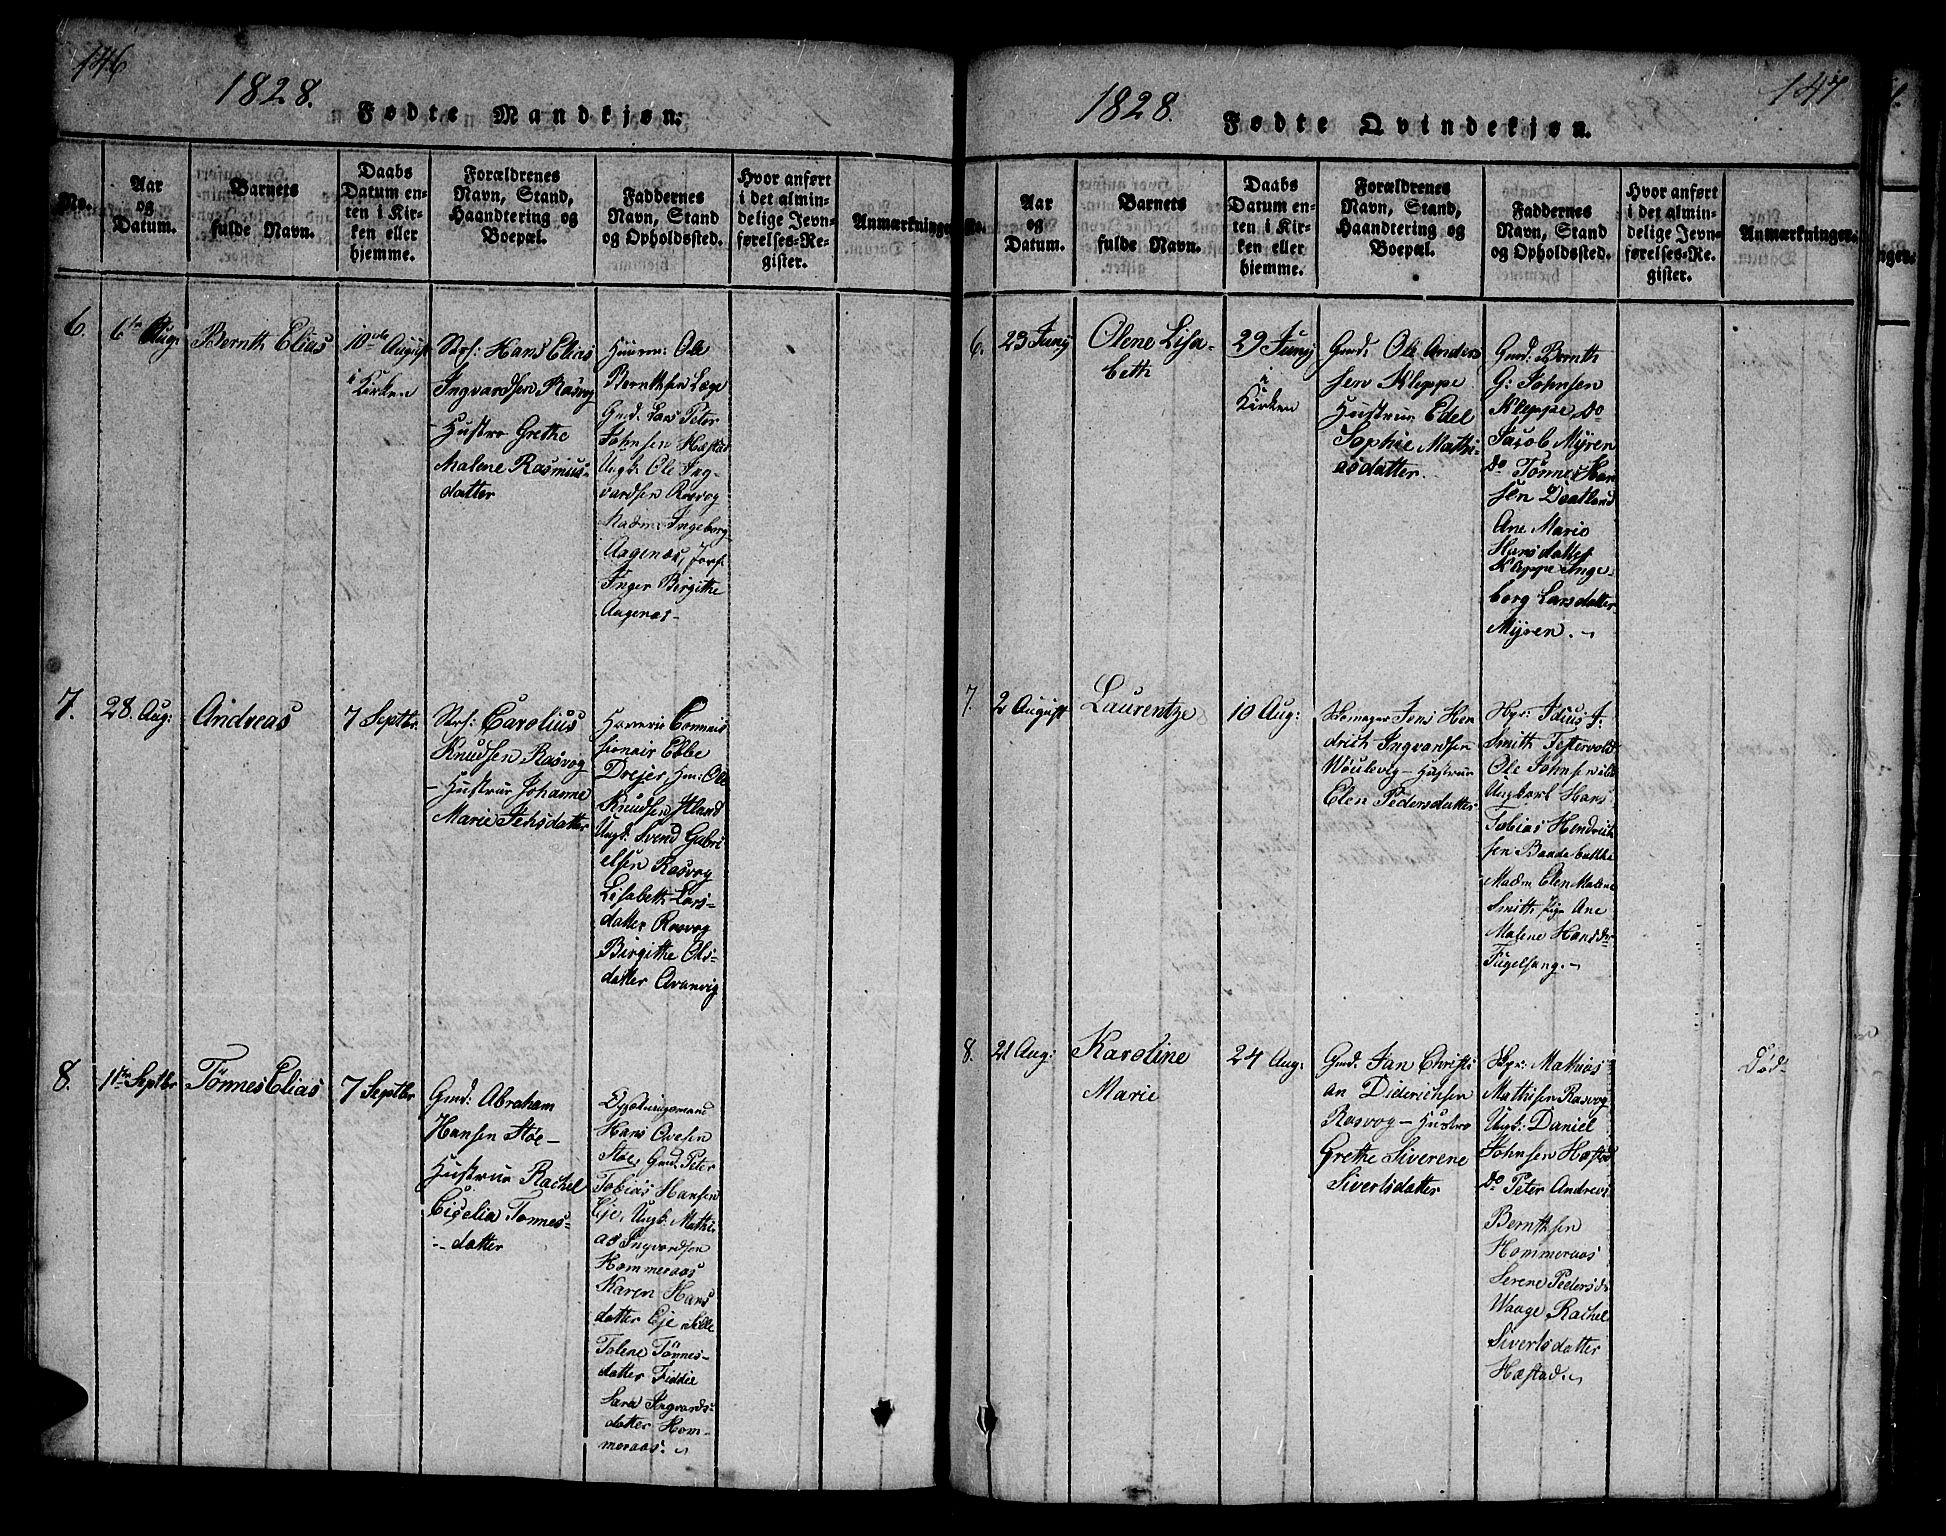 146
1828.
Fødte Mandkjøn.
No.
Aar
og
Datum.
Barnets
fulde Navn.
Daabs
Datum en-
ten i Kir-
ken eller
hjemme.
Forældrenes
Navn, Stand,
Haandtering og
Boepæl.
Faddernes
Navn, Stand
og Opholdssted.
Hvor anført
i det almin-
delige Jevn-
førelses-Re-
gister.
Anmærkninger
6.
6te Aug:
Bernth Elias
10de August
i
Kirken
Strf: Hans Elias
Ingvardsen Rasvog
- Hustro Grethe
Malene Rasmus-
datter
Ole
Berntsen Lege
Gmd. Lars Peter
Johnsen Hæstad
Ungk: Ole Ing-
vardsen Rasvog
Madm: Ingeborg
Aagenæs, Jomf:
Inger Birgithe
Aagenæs -
7.
28. Aug:
Andreas
7 Septbr.
Strf: Carolius
Knudsen Rasvog
- Hustrue Johanne
Marie Jensdatter
Commis-
sionair Ebbe
Drejer, Hm: Ole
Knudsen
Ungk: Svend Gabri
elsen Rasvog
Lisabeth Lars-
datter Rasvog
Birgithe Ols-
datter Qvanvig
8.
1ste Septbr
Tönnes Elias
7 Septbr
Gmd: Abraham
Hansen Støe -
Hustrue Rachel
Cicelia Tønnes-
- datter
Hans Ovesen
Støe, Gmd. Peter
Tobias Hansen
Eje, Ungk: Mathi
as Ingvardsen
Hommeraas
Karen Hans
datter Eje
Tolene Tönnes-
datter Fidder
Sara Ingvards-
datter Hom-
meraas.
147
1828.
Fødte Qvindekjøn.
No.
Aar
og
Datum.
Barnets
fulde Navn.
Daabs
Datum en-
ten i Kir-
ken eller
hjemme.
Forældrenes
Navn, Stand,
Haandtering og
Boepæl.
Faddernes
Navn, Stand
og Opholdssted.
Hvor anført
i det almin-
delige Jevn-
førelses-Re-
gister.
Anmærkninger.
6.
23 Juny
Olene Lisa-
beth
29 Juny
i
Kirken
Gmd. Ole Anders
sen Kleppe
Hustrue Edel
Sophie Mathi-
asdatter.
Gmd: Bernth
G: Johnsen
Kleppe Do
Jacob Myren
Do Tönnes Han
sen Daatland
Ane Marie
Hansdatter
Kleppe Inge-
borg Larsdatter
Myren. -
7.
2 August
Laurentze
10 Aug:
Jens Hen
drich Ingvardsen
- Hustrue
Elen Pedersdatter
J:
Smith
Ole Johnsen
Ungkarl Hans
Tobias Hendrich
sen
Madm Elen Malene
Smith Pige Ane
Malene Hansdr
Fugelsang. -
8.
21 Aug:
Karoline
Marie
24 Aug:
Gmd. Jan Christi
an Diderichsen
Rasvog - Hustro
Grethe Siverene
Sivertsdatter
Mathias
Mathisen Rasvog
Ungk: Daniel
Johnsen Hæstad
Do Peter Andreas
Bernthsen
Hommeraas
Serene Pedersd.
Waage Rachel
Sivertsdatter
Hæstad.
Död -